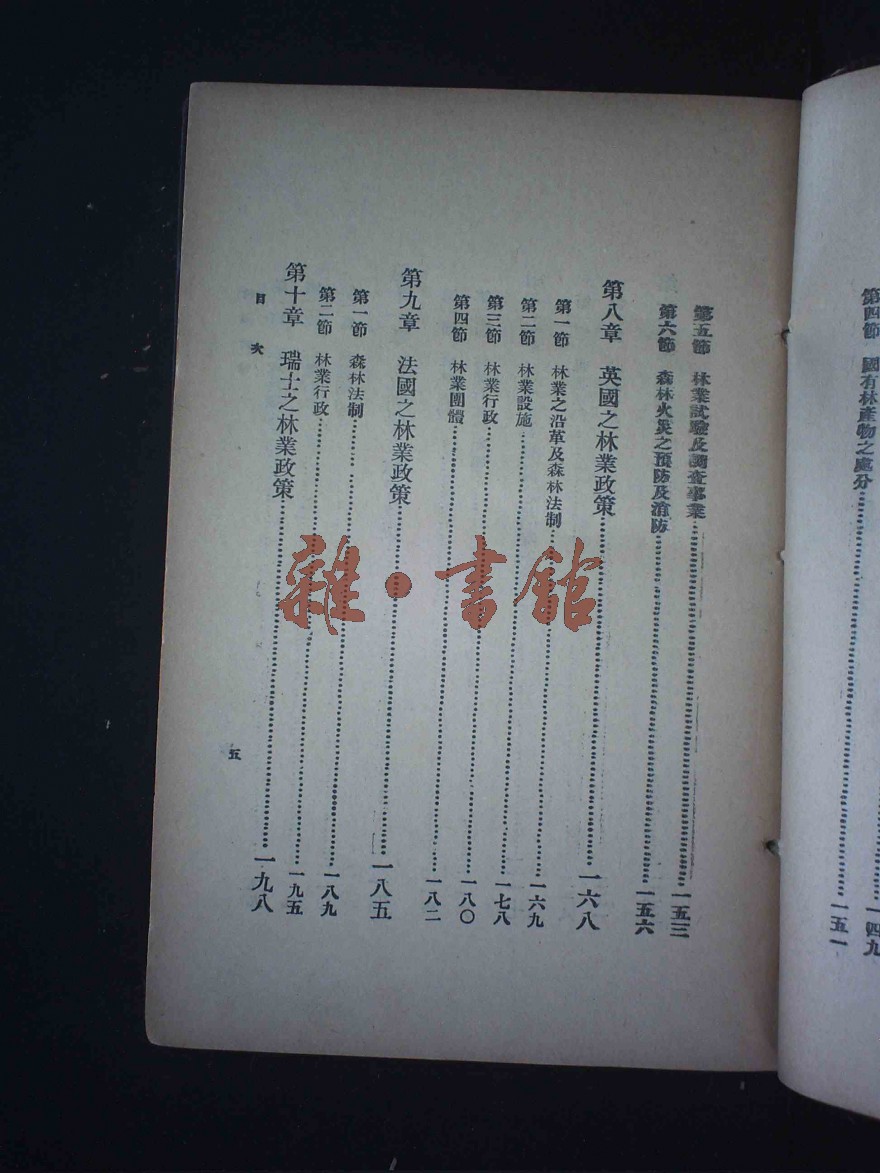 第四節 國有林產物之處分……一五一
第五節 林業試驗及調查事業……一五三
第六節 森林火災之預防及消防……一五六
第八章 英國之林業政策……一六八
第一節 林業之沿革及森林法制……一六九
第二節 林業設施……一七八
第三節 林業行政……一八〇
第四節 林業團體……一八二
第九章 法國之林業政策……一八五
第一節 森林法制……一八九
第二節 林業行政……一九五
第十章 瑞士之林業政策……一九八
目次
五
一四九
雜·書館